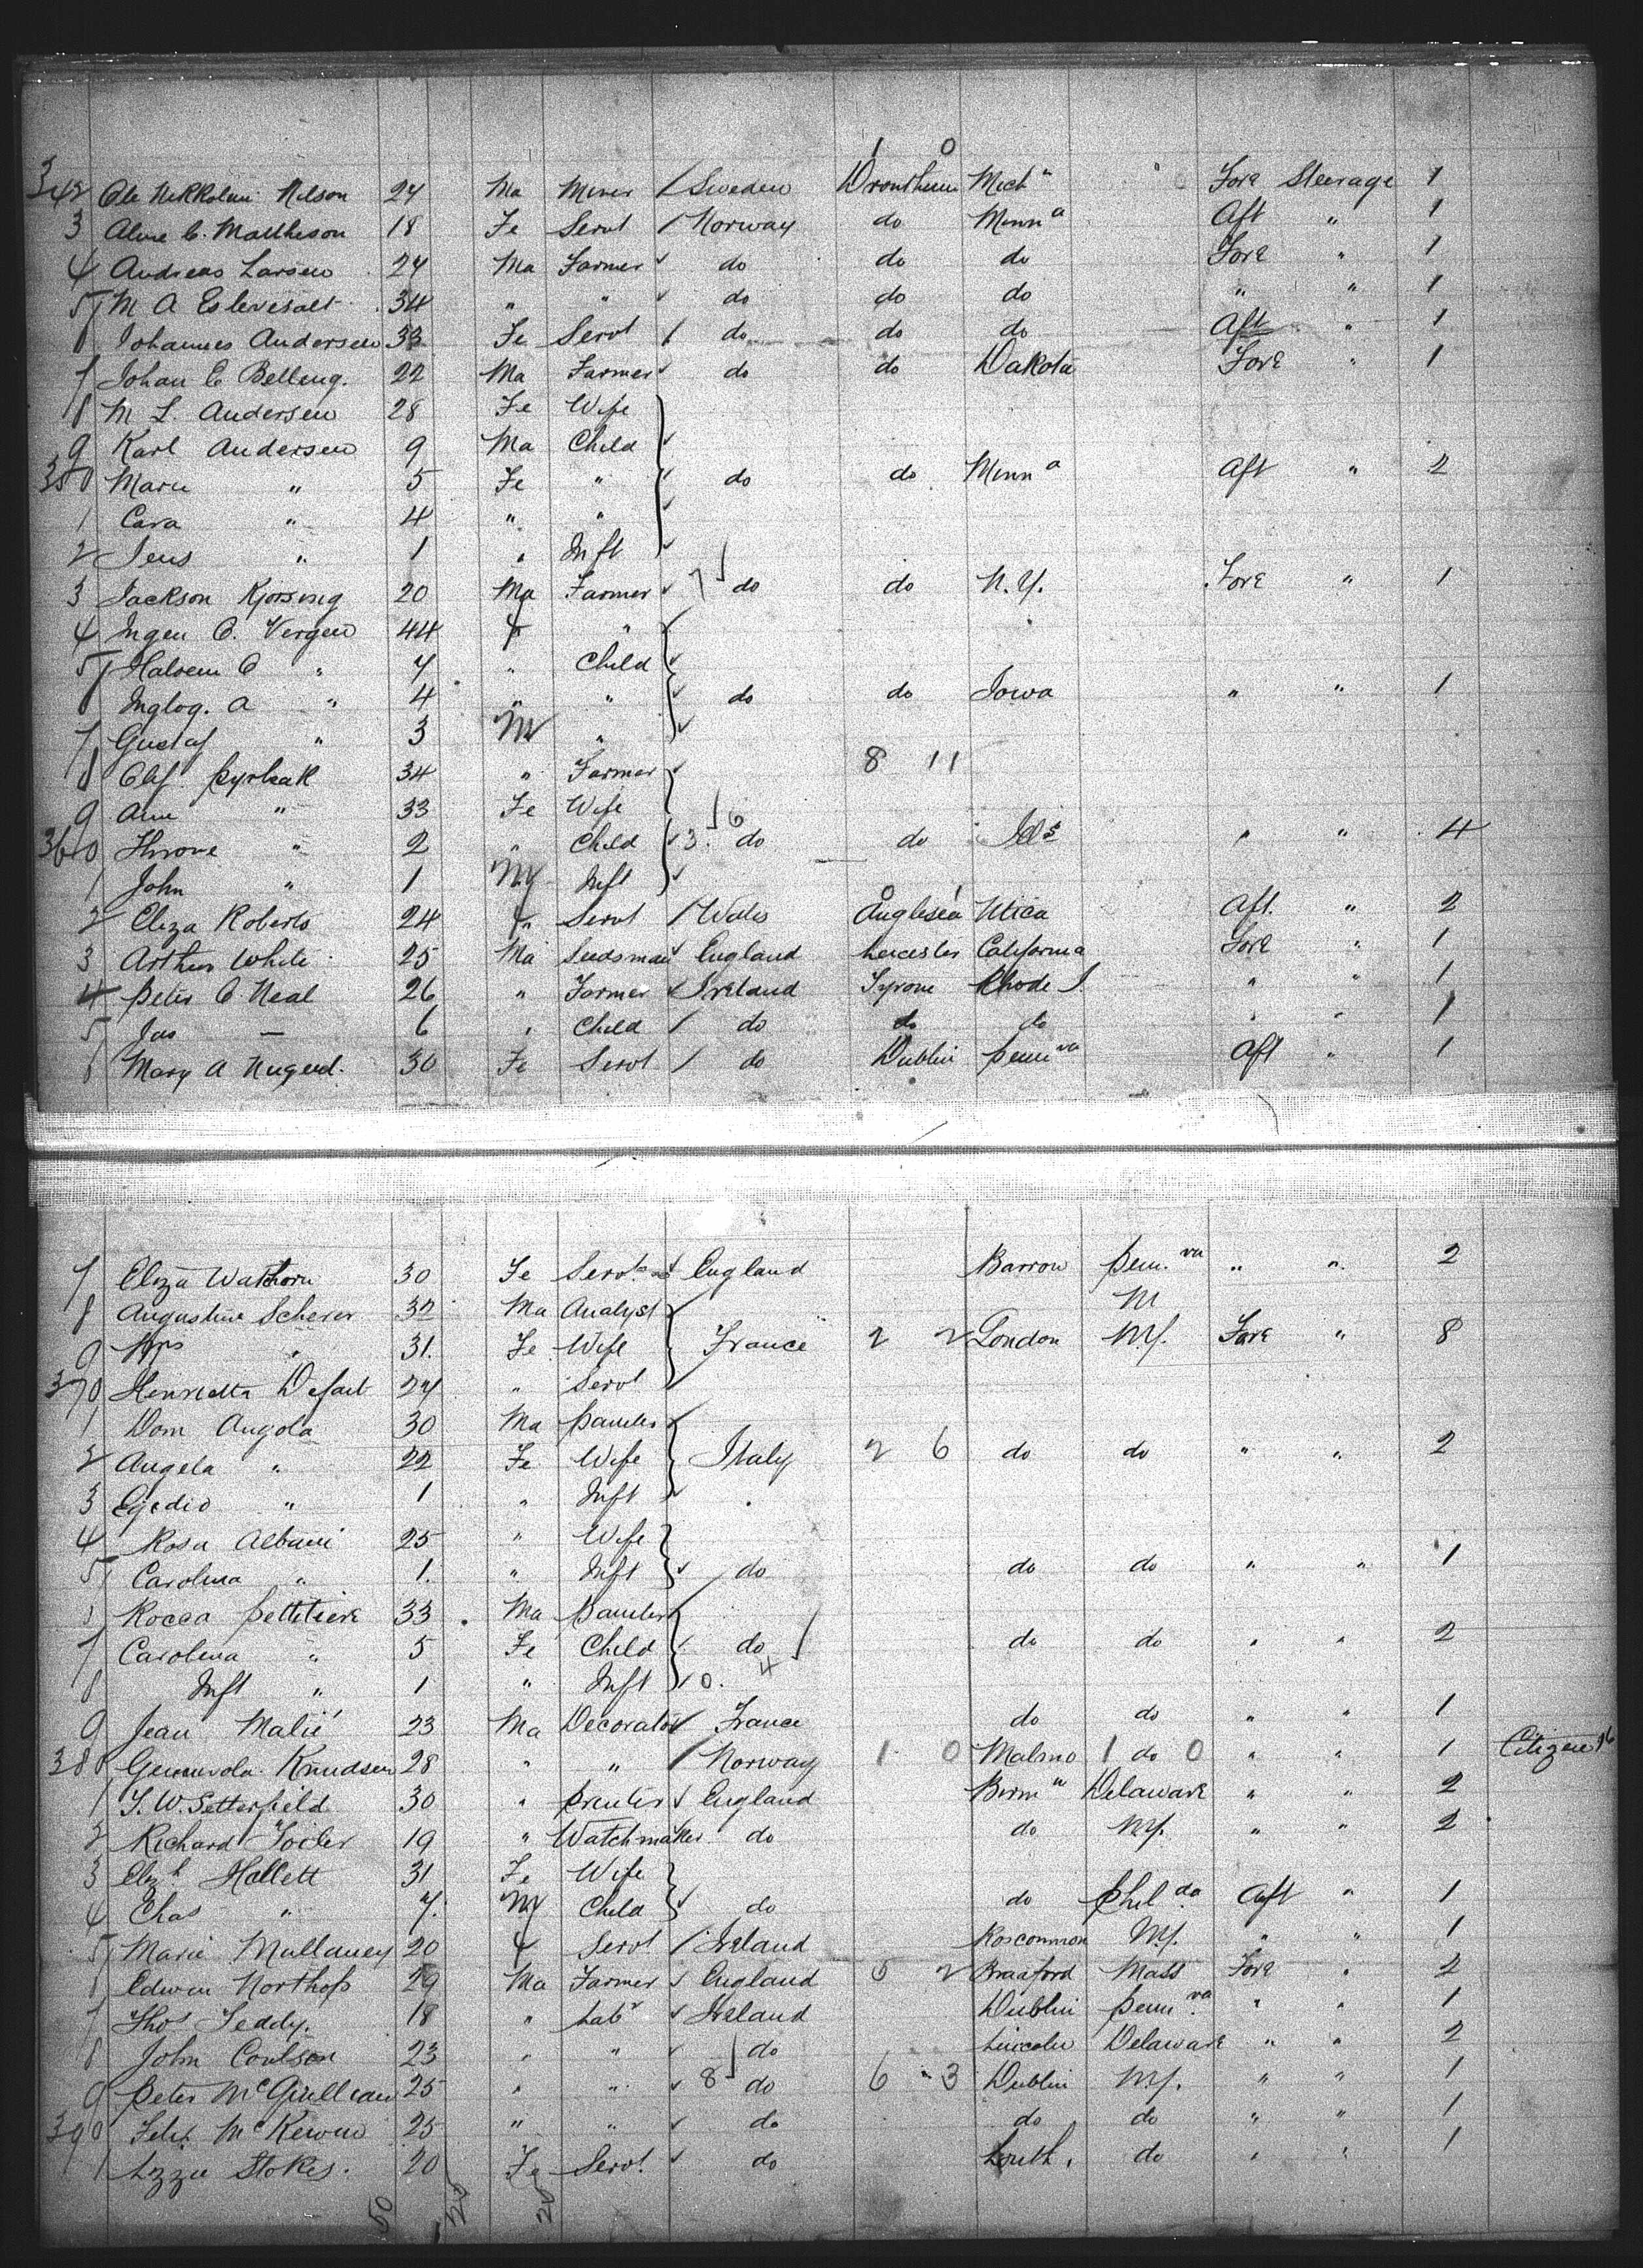 1 0
342 Ole Nikkolari Nilson 24 Ma Miner / Sweden Drontheim Mich n Fore Steerage 1
3 Aline C. Mattheson 18 Fe Servt / Norway do Minn a Aft " 1
4 Andreas Larsen 24 Ma Farmer do do do Fore " 1
5 M A Eslevesalt 34 " " do do do " " 1
6 Johannes Andersen 33 Fe Servt / do do do Aft " 1
7 Johan E Belleng. 22 Ma Farmer do do Dakota Fore " 1
8 M L. Andersen 28 Fe Wife
9 Karl Andersen 9 Ma Child
350 Marie " 5 Fe " do do Minn a Aft " 2
1 Cara " 4 " "
2 Jens " 1 " Inft
3 Jackson Kjorsing 20 Ma Farmer 7 do do N.Y. Fore " 1
4 Ingen O. Vergen 44 f "
5 Halvem O " 7 " Child
6 Inglog. A " 4 " " do do Iowa " " 1
7 Gustaf " 3 M "
8 Olif 34 " Farmer 8 11
9 Ane " 33 Fe Wife
360 " 2 " Child 3 6 do do Ills " " 4
1 John " 1 My Inft
2 Eliza Roberts 24 f Servt / Wales Anglesea Utica Aft. " 2
3 Arthur White 25 Ma Seedsman England Leicester California Fore " 1
4 Peter O. Neal 26 " Farmer Ireland Tyrone Rhode I. " " 1
5 Jas — 6 " Child / do do do " " 1
6 Mary A Nugend. 30 Fe Servt / do Dublin Penn va Aft " 1
7 Eliza Wathorn 30 Fe Servt England Barrow Penn. va " " 2
8 Augustine Scherer 32 Ma Analyst M
9 Mrs " 31. Fe Wife France 2 2 London N.Y. Fore " 8
370 Henrietta Defait 24 " Servt
1 Dom Angola 30 Ma Painter
2 Angela " 22 Fe Wife Italy 2 6 do do " " 2
3 Egedio " 1 " Inft
4 Rosa Albani 25 " Wife
5 Carolina " 1. " Inft do do do " " 1
6 Rocca Pettitiere 33 Ma Painter
7 Carolina " 5 Fe Child do do do " " 2
8 Inft " 1 " Inft 0. 4
9 Jean Malié 23 Ma Decorator France do do " " 1
380 Knudsen 28 " " / Norway 1 0 Malmo 1 do 0 " " 1 Citizen
1 T. W. Setterfield 30 " Printer England Birm m Delaware " " 2
2 Richard Toiler 19 " Watchmaker do do N.Y. " " 2
3 Eliz h Hallett 31 Fe Wife
4 Chas " 7. My Child do do Phil da Aft " 1
5 Marie Mullaney 20 f Servt / Ireland Roscommon N.Y. " " 1
6 Edwin Northop 29 Ma Farmer England 5 2 Bradford Mass Fore " 2
7 Thos Teddy. 18 " Labr Ireland Dublin Penn va " " 1
8 John Coulson 23 " " do Lincoln Delaware " " 2
9 Peter 25 " " 8 do 6 3 Dublin N.Y. " " 1
390 Felix McKeown 25 " " do do do " " 1
1 Lizzie Stokes. 20 Fe Servt. do Louth. do " " 1
50 25 25